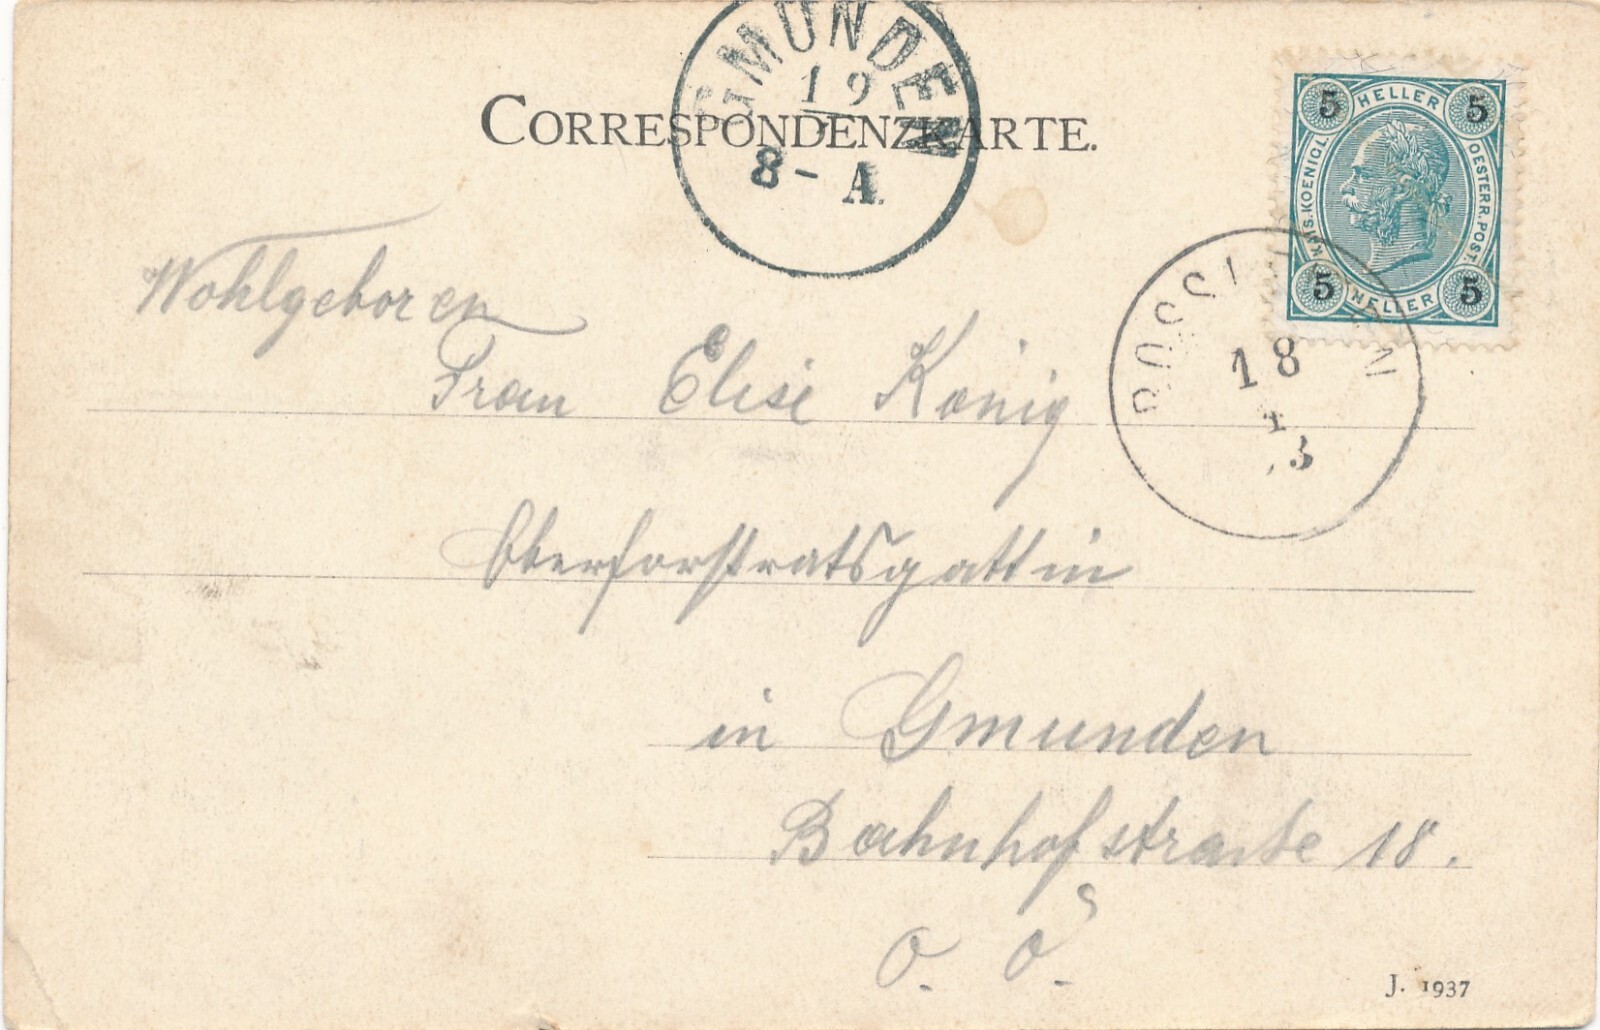 GMUNDEN
19
8 - A.
CORRESPONDENZKARTE.
5 HELLER 5
KAIS. KOENIGL.
OESTERR. POST.
5 HELLER 5
18
4
3
Wohlgeboren
Frau Elise König
Oberforstratsgattin
in Gmunden
Bahnhofstraße 18.
O. Ö.
J. 1937